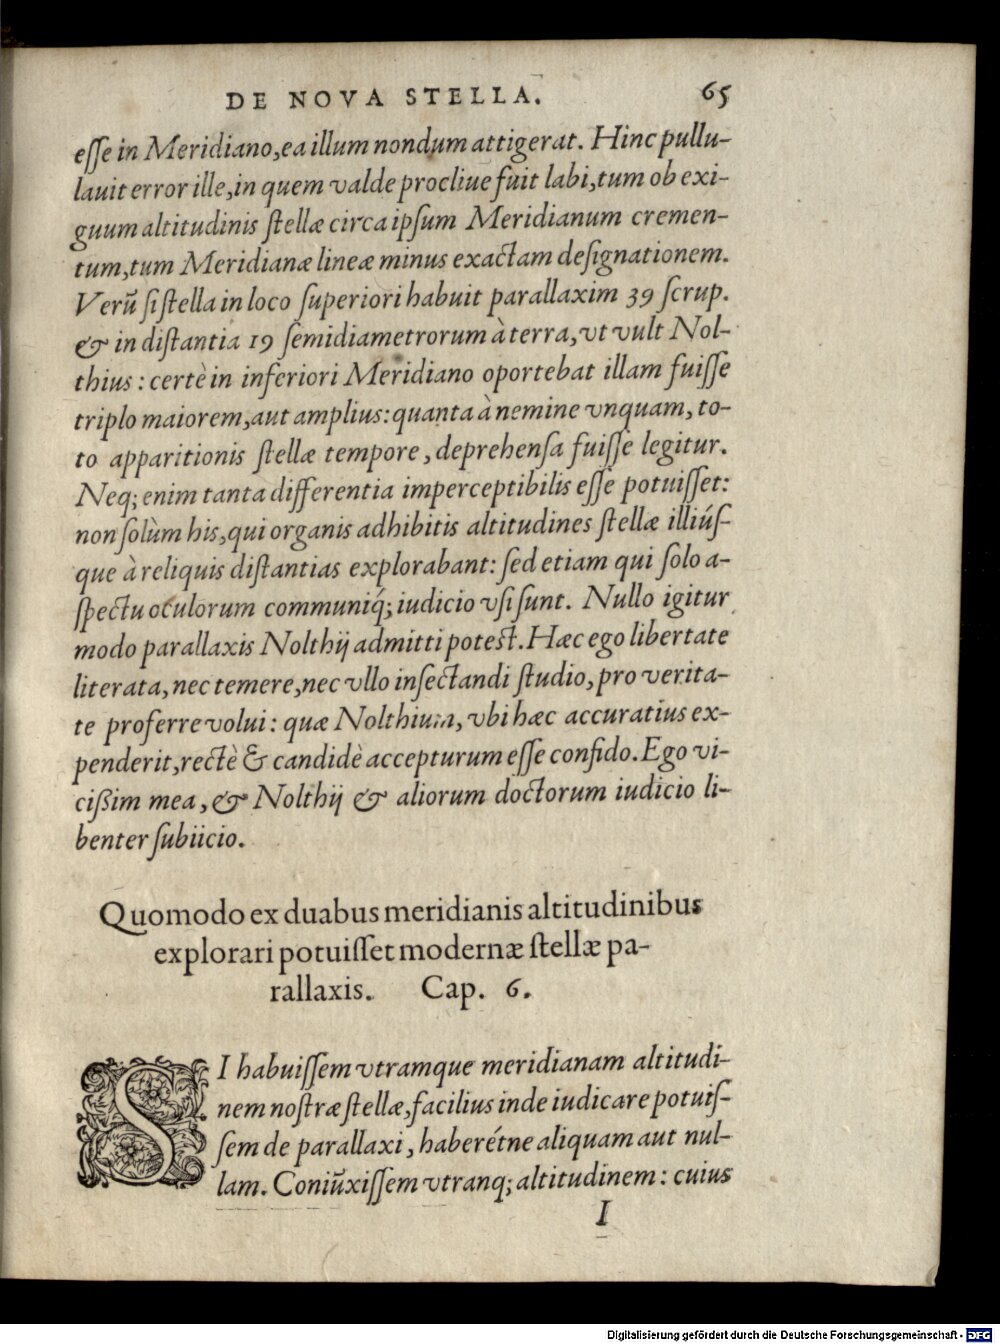 DE NOVA STELLA. 65
eſſe in Meridiano, ea illum nondum attigerat. Hinc pullu-
lauit error ille, in quem valde procliue fuit labi, tum ob exi-
guum altitudinis ſtellæ circa ipſum Meridianum cremen-
tum, tum Meridianæ lineæ minus exactam deſignationem.
Verũ ſi ſtella in loco ſuperiori habuit parallaxim 39 ſcrup.
& in diſtantia 19 ſemidiametrorum à terra, vt vult Nol-
thius: certè in inferiori Meridiano oportebat illam fuiſſe
triplo maiorem, aut amplius: quanta à nemine vnquam, to-
to apparitionis ſtellæ tempore, deprehenſa fuiſſe legitur.
Neq; enim tanta differentia imperceptibilis eſſe potuiſſet:
non ſolùm his, qui organis adhibitis altitudines ſtellæ illiúſ-
que à reliquis diſtantias explorabant: ſed etiam qui ſolo a-
ſpectu oculorum communiq́; iudicio vſi ſunt. Nullo igitur
modo parallaxis Nolthij admitti poteſt. Hæc ego libertate
literata, nec temere, nec vllo inſectandi ſtudio, pro verita-
te proferre volui: quæ Nolthium, vbi hæc accuratius ex-
penderit, rectè & candidè accepturum eſſe confido. Ego vi-
cißim mea, & Nolthij & aliorum doctorum iudicio li-
benter ſubiicio.
Quomodo ex duabus meridianis altitudinibus
explorari potuiſſet modernæ ſtellæ pa-
rallaxis. Cap. 6.
SI habuiſſem vtramque meridianam altitudi-
nem noſtræ ſtellæ, facilius inde iudicare potuiſ-
ſem de parallaxi, haberétne aliquam aut nul-
lam. Coniũxiſſem vtranq; altitudinem: cuius
I
Digitalisierung gefördert durch die Deutsche Forschungsgemeinschaft - DFG